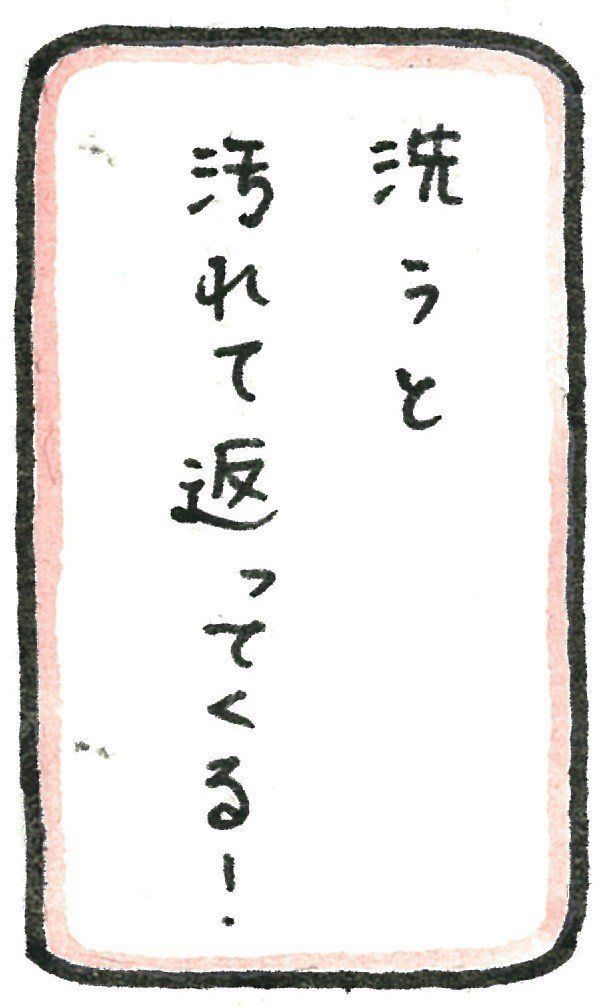 洗うと
汚れて返ってくる!